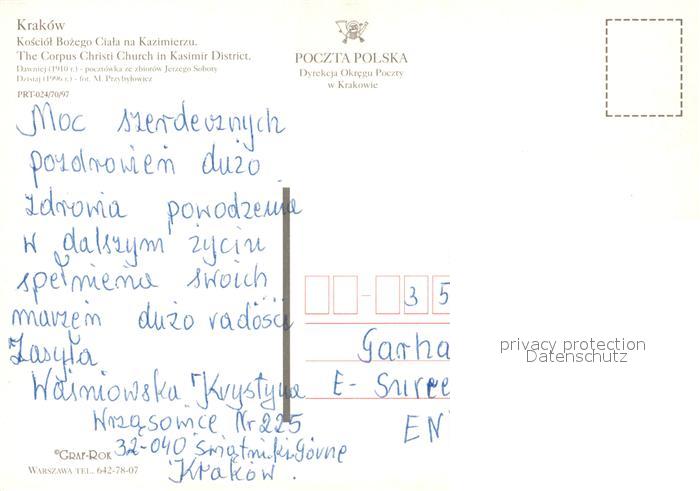 Kraków
Kościół Bożego Ciała na Kazimierzu.
The Corpus Christi Church in Kasimir District.
Dawniej (1910 r.) - pocztówka ze zbiorów Jerzego Soboty
Dzisiaj (1996 r.) - fot. M. Przybyłowicz
PRT-024/70/97
POCZTA POLSKA
Dyrekcja Okręgu Poczty
w Krakowie
Moc szerdecznych
pozdrowień dużo
zdrowia powodzenia
w dalszym życiu
spełnienia swoich
marzeń dużo radości
Zasyła
Waśniowska Krystyna
Wrząsowice Nr 225
32-040 Świątniki Górne
Kraków.
©GRAF-ROK
WARSZAWA TEL. 642-78-07
- 3 5
Garha
E- Surre
EN
privacy protection
Datenschutz